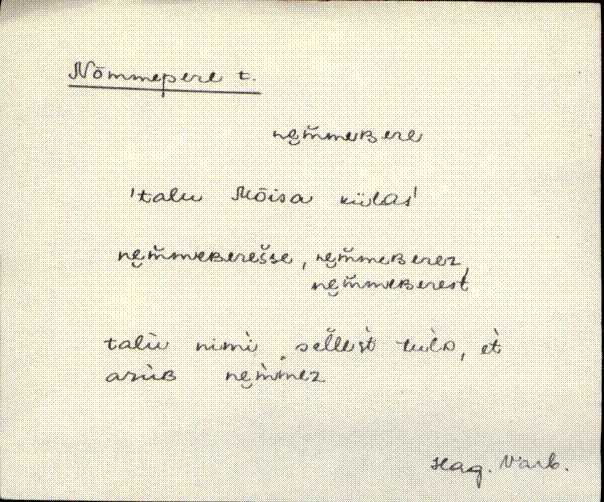 Nõmmepere t.
ne̮m̆meʙere
'talu Mõisa külas'
ne̮m̆meʙerešse, ne̮m̆meʙerez,
ne̮m̆meʙerest
talù nimì sel̆lest tulo, et̀
arùʙ ne̮m̀mez
Hag. Varb.